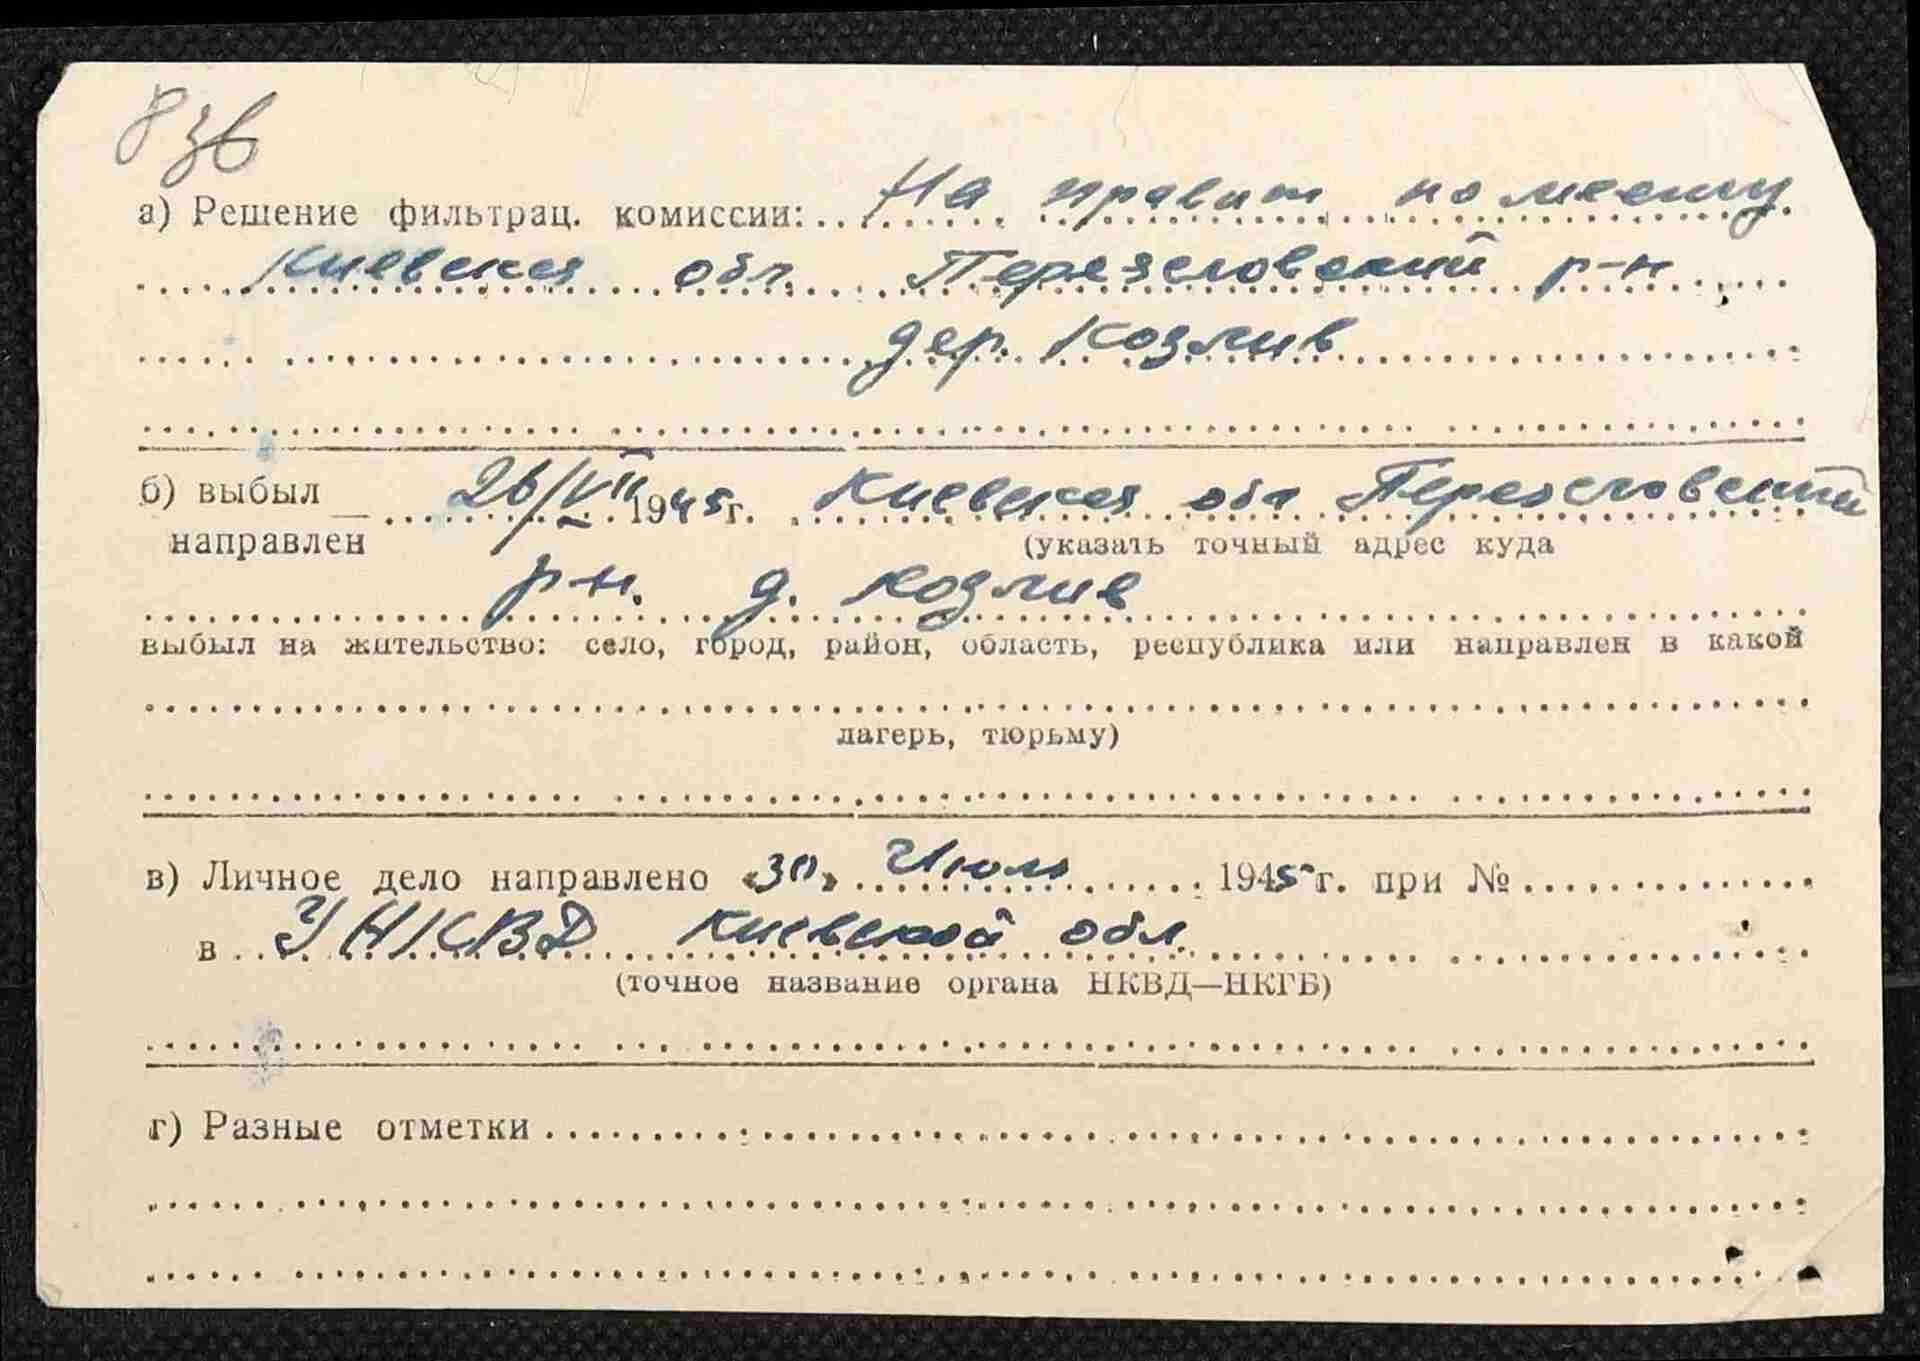 836
а) Решение фильтрац. комиссии: На правит по месту
Киевская обл. Переясловский р-н,
дер. Козлив
б) выбыл — 26/VII 1945 г. Киевская обл Переясловский
направлен (указать точный адрес куда
р-н. д. Козлив
выбыл на жительство: село, город, район, область, республика или направлен в какой
лагерь, тюрьму)
в) Личное дело направлено «30» Июля 1945 г. при №
в УНКВД Киевской обл.
(точное название органа НКВД—НКГБ)
г) Разные отметки